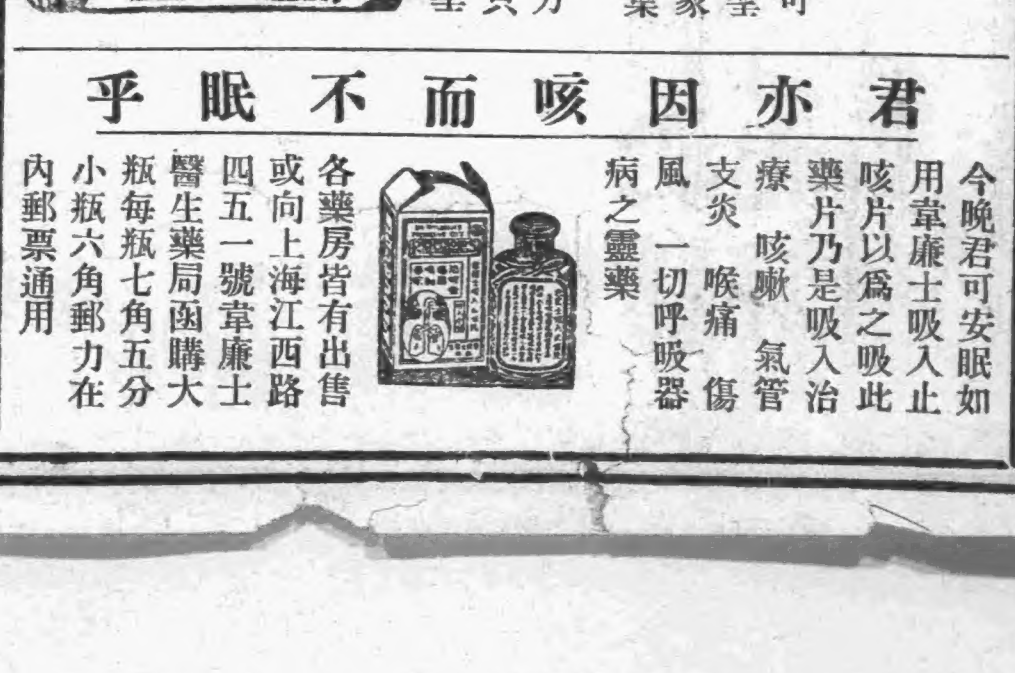 君亦因咳而不眠乎
今晚君可安眠如
用韋廉士吸入止
咳片以爲之吸此
藥片乃是吸入治
療 咳嗽 氣管
支炎 喉痛 傷
風 一切呼吸器
病之靈藥
各藥房皆有出售
或向上海江西路
四五一號韋廉士
醫生藥局函購大
瓶每瓶七角五分
小瓶六角郵力在
內郵票通用